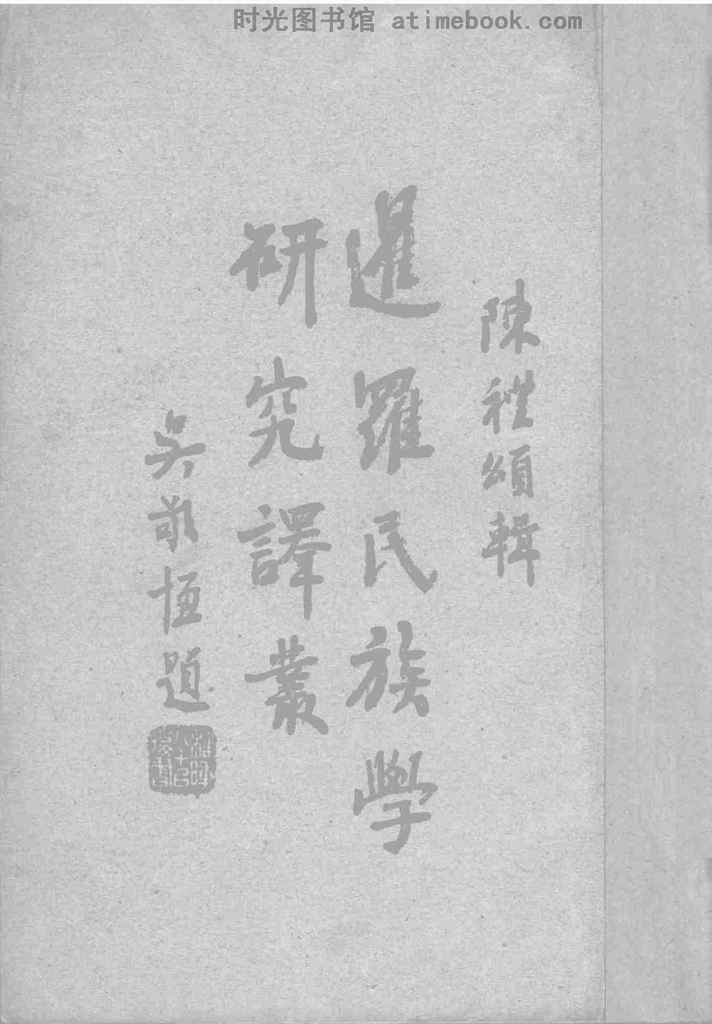 时光图书馆 atimebook.com
陳禮頌輯
暹羅民族學
研究譯叢
吳敬恆題